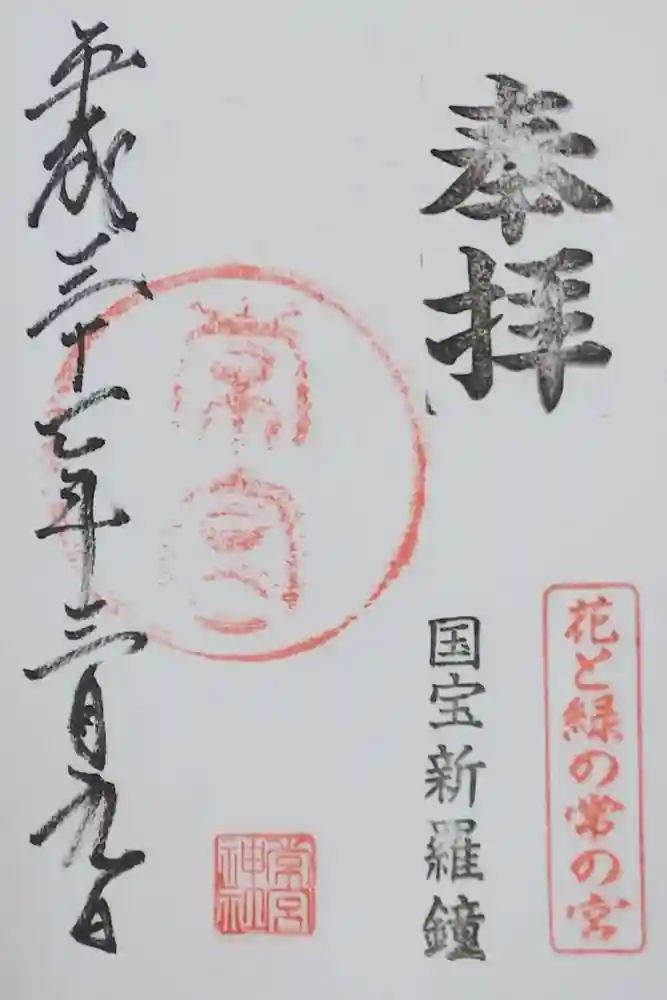 奉拝
花と緑の常の宮
国宝新羅鐘
常宮
常宮
神社
平成三十一年三月九日